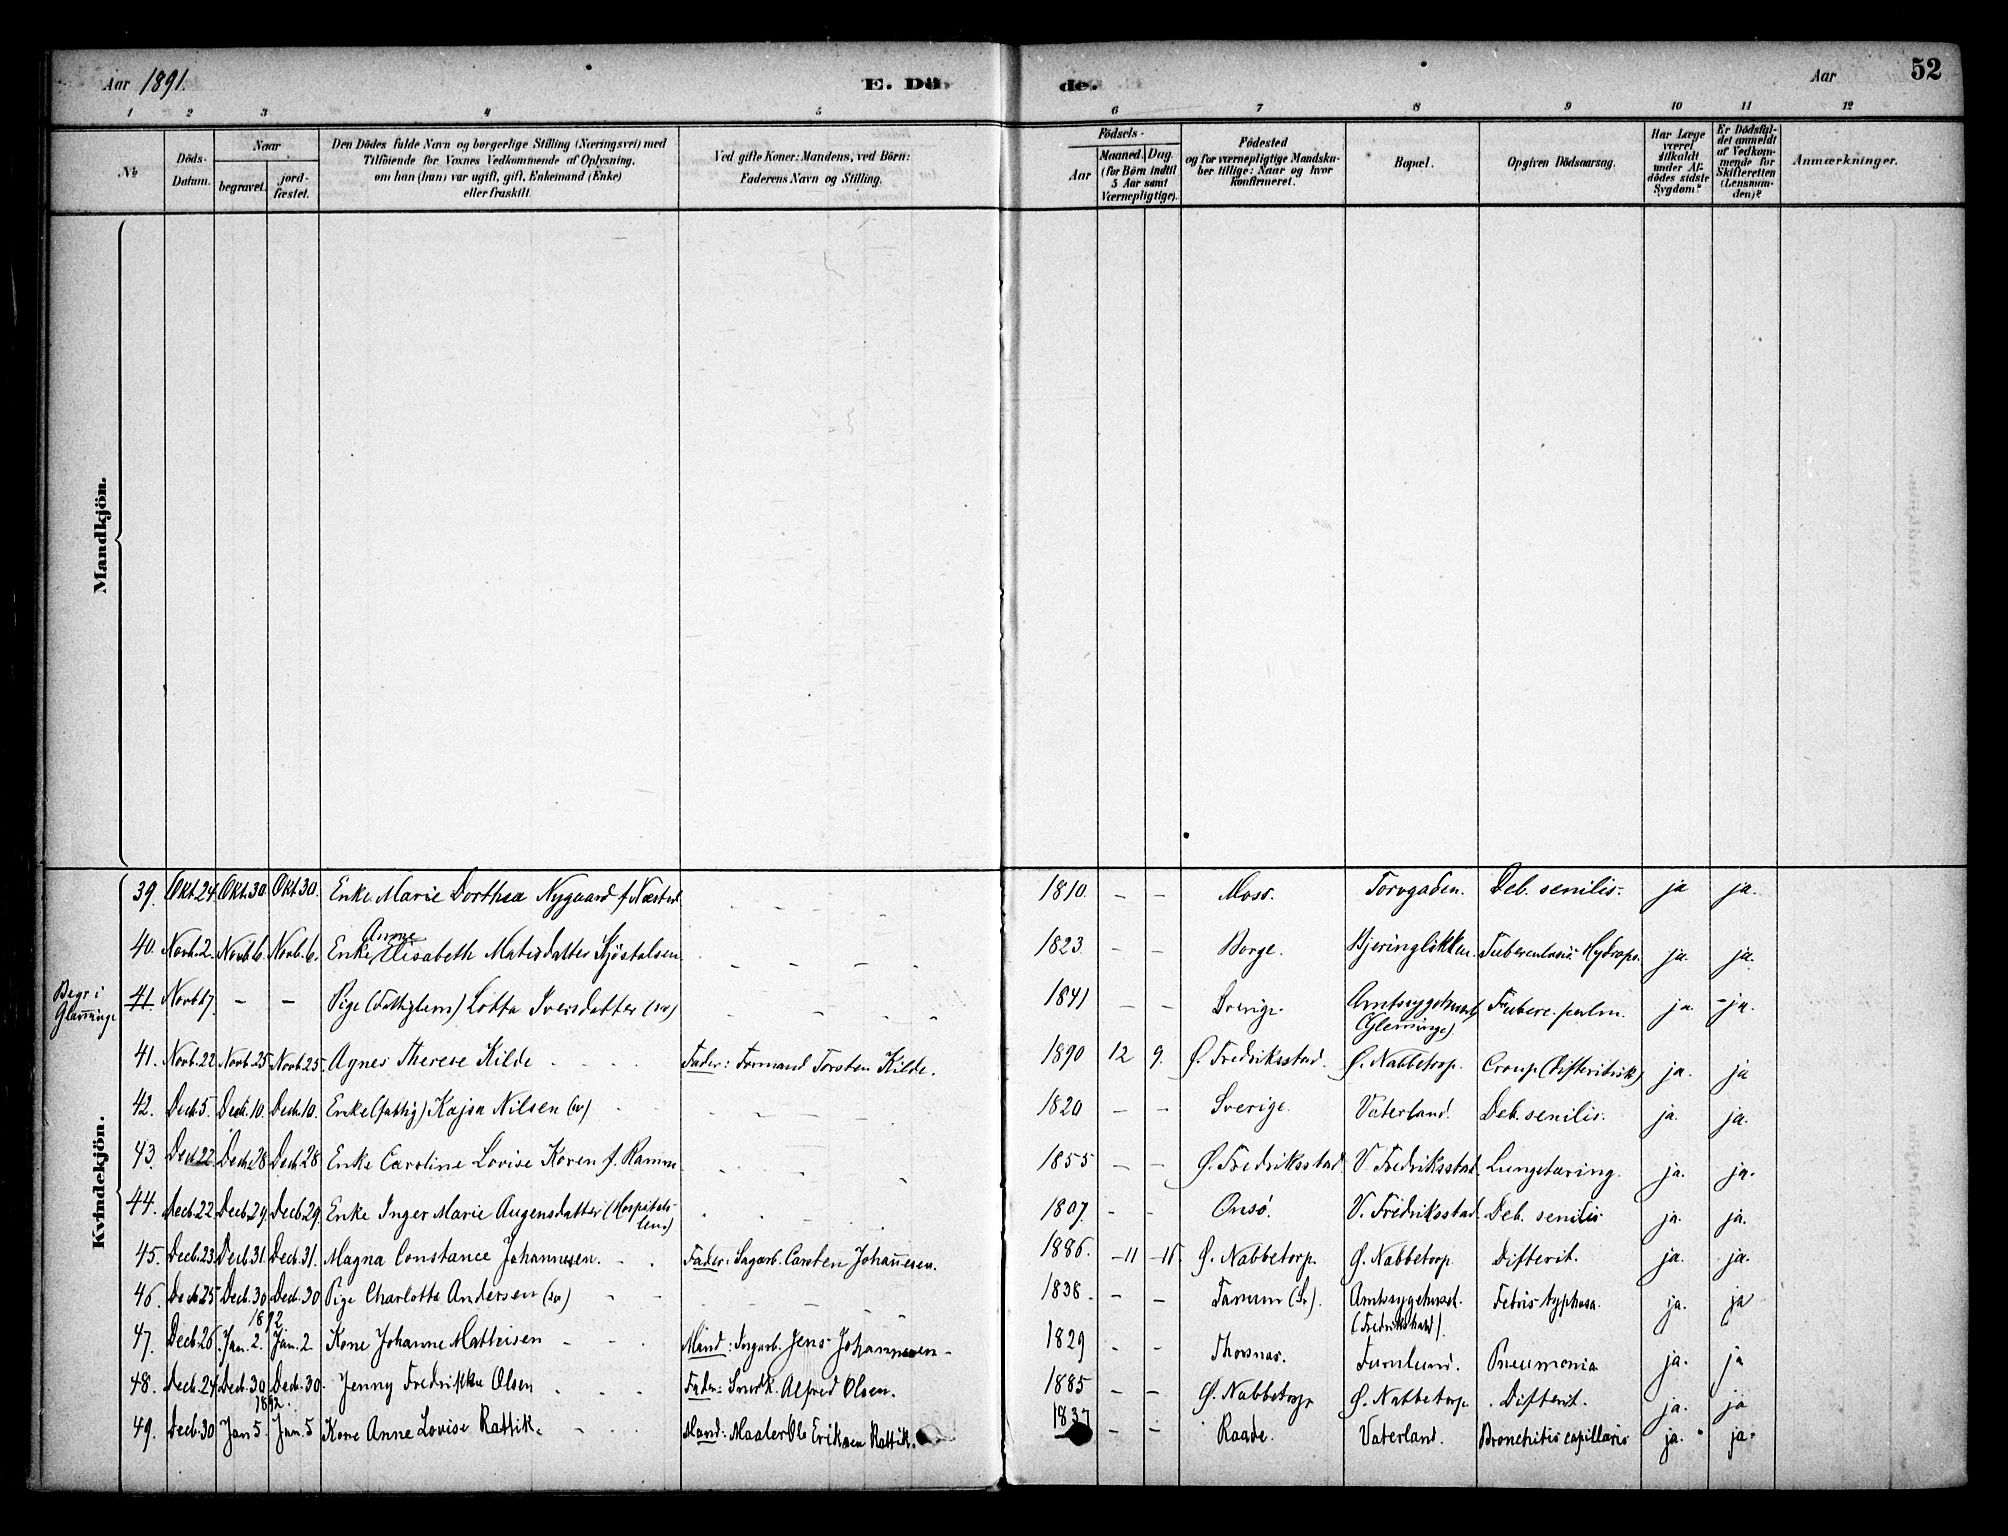 Aar 1891. E. Dö de. Aar 52
1 2 3 4 5 6 7 8 9 10 11 12
№ Döds-Datum. Naar begravet. jordfæstet. Den Dödes fulde Navn og borgerlige Stilling (Næringsvei) med Tilföiende for Voxnes Vedkommende af Oplysning, om han (hun) var ugift, gift, Enkemand (Enke) eller fraskilt. Ved gifte Koner: Mandens, ved Börn: Faderens Navn og Stilling. Födsels- Aar Maaned. Dag. (for Börn indtil 5 Aar samt Værnepligtige). Födested og for værnepligtige Mandskaber tillige: Naar og hvor konfirmeret. Bopæl. Opgiven Dödsaarsag. Har Læge været tilkaldt under Afdödes sidste Sygdom? Er Dödsfaldet anmeldt af Vedkommende for Skifteretten (Lensmanden)? Anmærkninger.
Mandkjön.
Kvindekjön.
39. Okt. 24 Okt. 30 Okt. 30. Enke Marie Dorthea Nygaard f. Næsted - - - - 1810. - - Moss. Torvgaden. Deb. senilis. ja ja.
40. Novb. 2. Novb. 6. Novb. 6. Enke Anne Elisabeth Matisdatter Kjöstelsen - - - - 1823 - - Borge. Bjeringlökken. Tuberculosis Hydrops. ja. ja.
Begr. i Glemminge 41. Novb. 17. - - Pige (Fattiglem) Lotta Iversdatter (sv) - - - - 1841 - - Sverige. Amtssygehuset (Glemminge) Tuberc. pulm. ja. - ja.
41. Novb. 22 Novb. 25 Novb. 25. Agnes Therese Kilde - - - Fader: Formand Torsten Kilde. 1890 12 9. Ø. Fredriksstad. Ø. Nabbetorp. Croup (Difteritisk) ja. ja
42. Decb. 5. Decb. 10. Decb. 10. Enke (fattig) Kajsa Nilsen (sv) - - - - 1820 - - Sverige. Vaterland. Deb. senilis. ja. ja.
43. Decb. 22. Decb. 28 Decb. 28 Enke Caroline Lovise Koren f. Ramm - - - 1855 - - Ø. Fredriksstad V. Fredriksstad. Lungetæring. ja. ja.
44. Decb. 22. Decb. 29. Decb. 29. Enke Inger Marie Augensdatter (Hospitalslem) - - - 1807. - - Onsö. V. Fredriksstad. Deb. senilis ja. ja.
45. Decb. 23. Decb. 31. Decb. 31. Magna Constance Johannesen. - - Fader: Sagarb. Carsten Johannesen. 1886. - 11 - 16. Ø. Nabbetorp. Ø. Nabbetorp Difterit. ja. ja.
46. Decb. 25 Decb. 30 Decb. 30 Pige Charlotta Andersen (sv) - - - - 1838. - - Tanum (Sv). Amtssygehuset. (Fredrikshald). Febris typhosa. ja. ja
47. Decb. 26. 1892 Jan. 2. Jan. 2 Kone Johanne Mathisen - - Mand: Sagarb. Jens Johannesen - 1829 - - Thorsnæs. Furulund. Pneumonia ja. ja
48. Decb. 24 Decb. 30 Decb. 30. Jenny Fredrikke Olsen - - - Fader: Smedk. Alfred Olsen. 1885 - - Ø. Nabbetorp Ø. Nabbetorp. Difterit. ja. ja
49. Decb. 30 1892. Jan 5. Jan. 5 Kone Anne Lovise Rattik. - - Mand: Maaler Ole Eriksen Rattik. 1837 - - Raade. Vaterland. Bronchitis capillaris ja. ja.